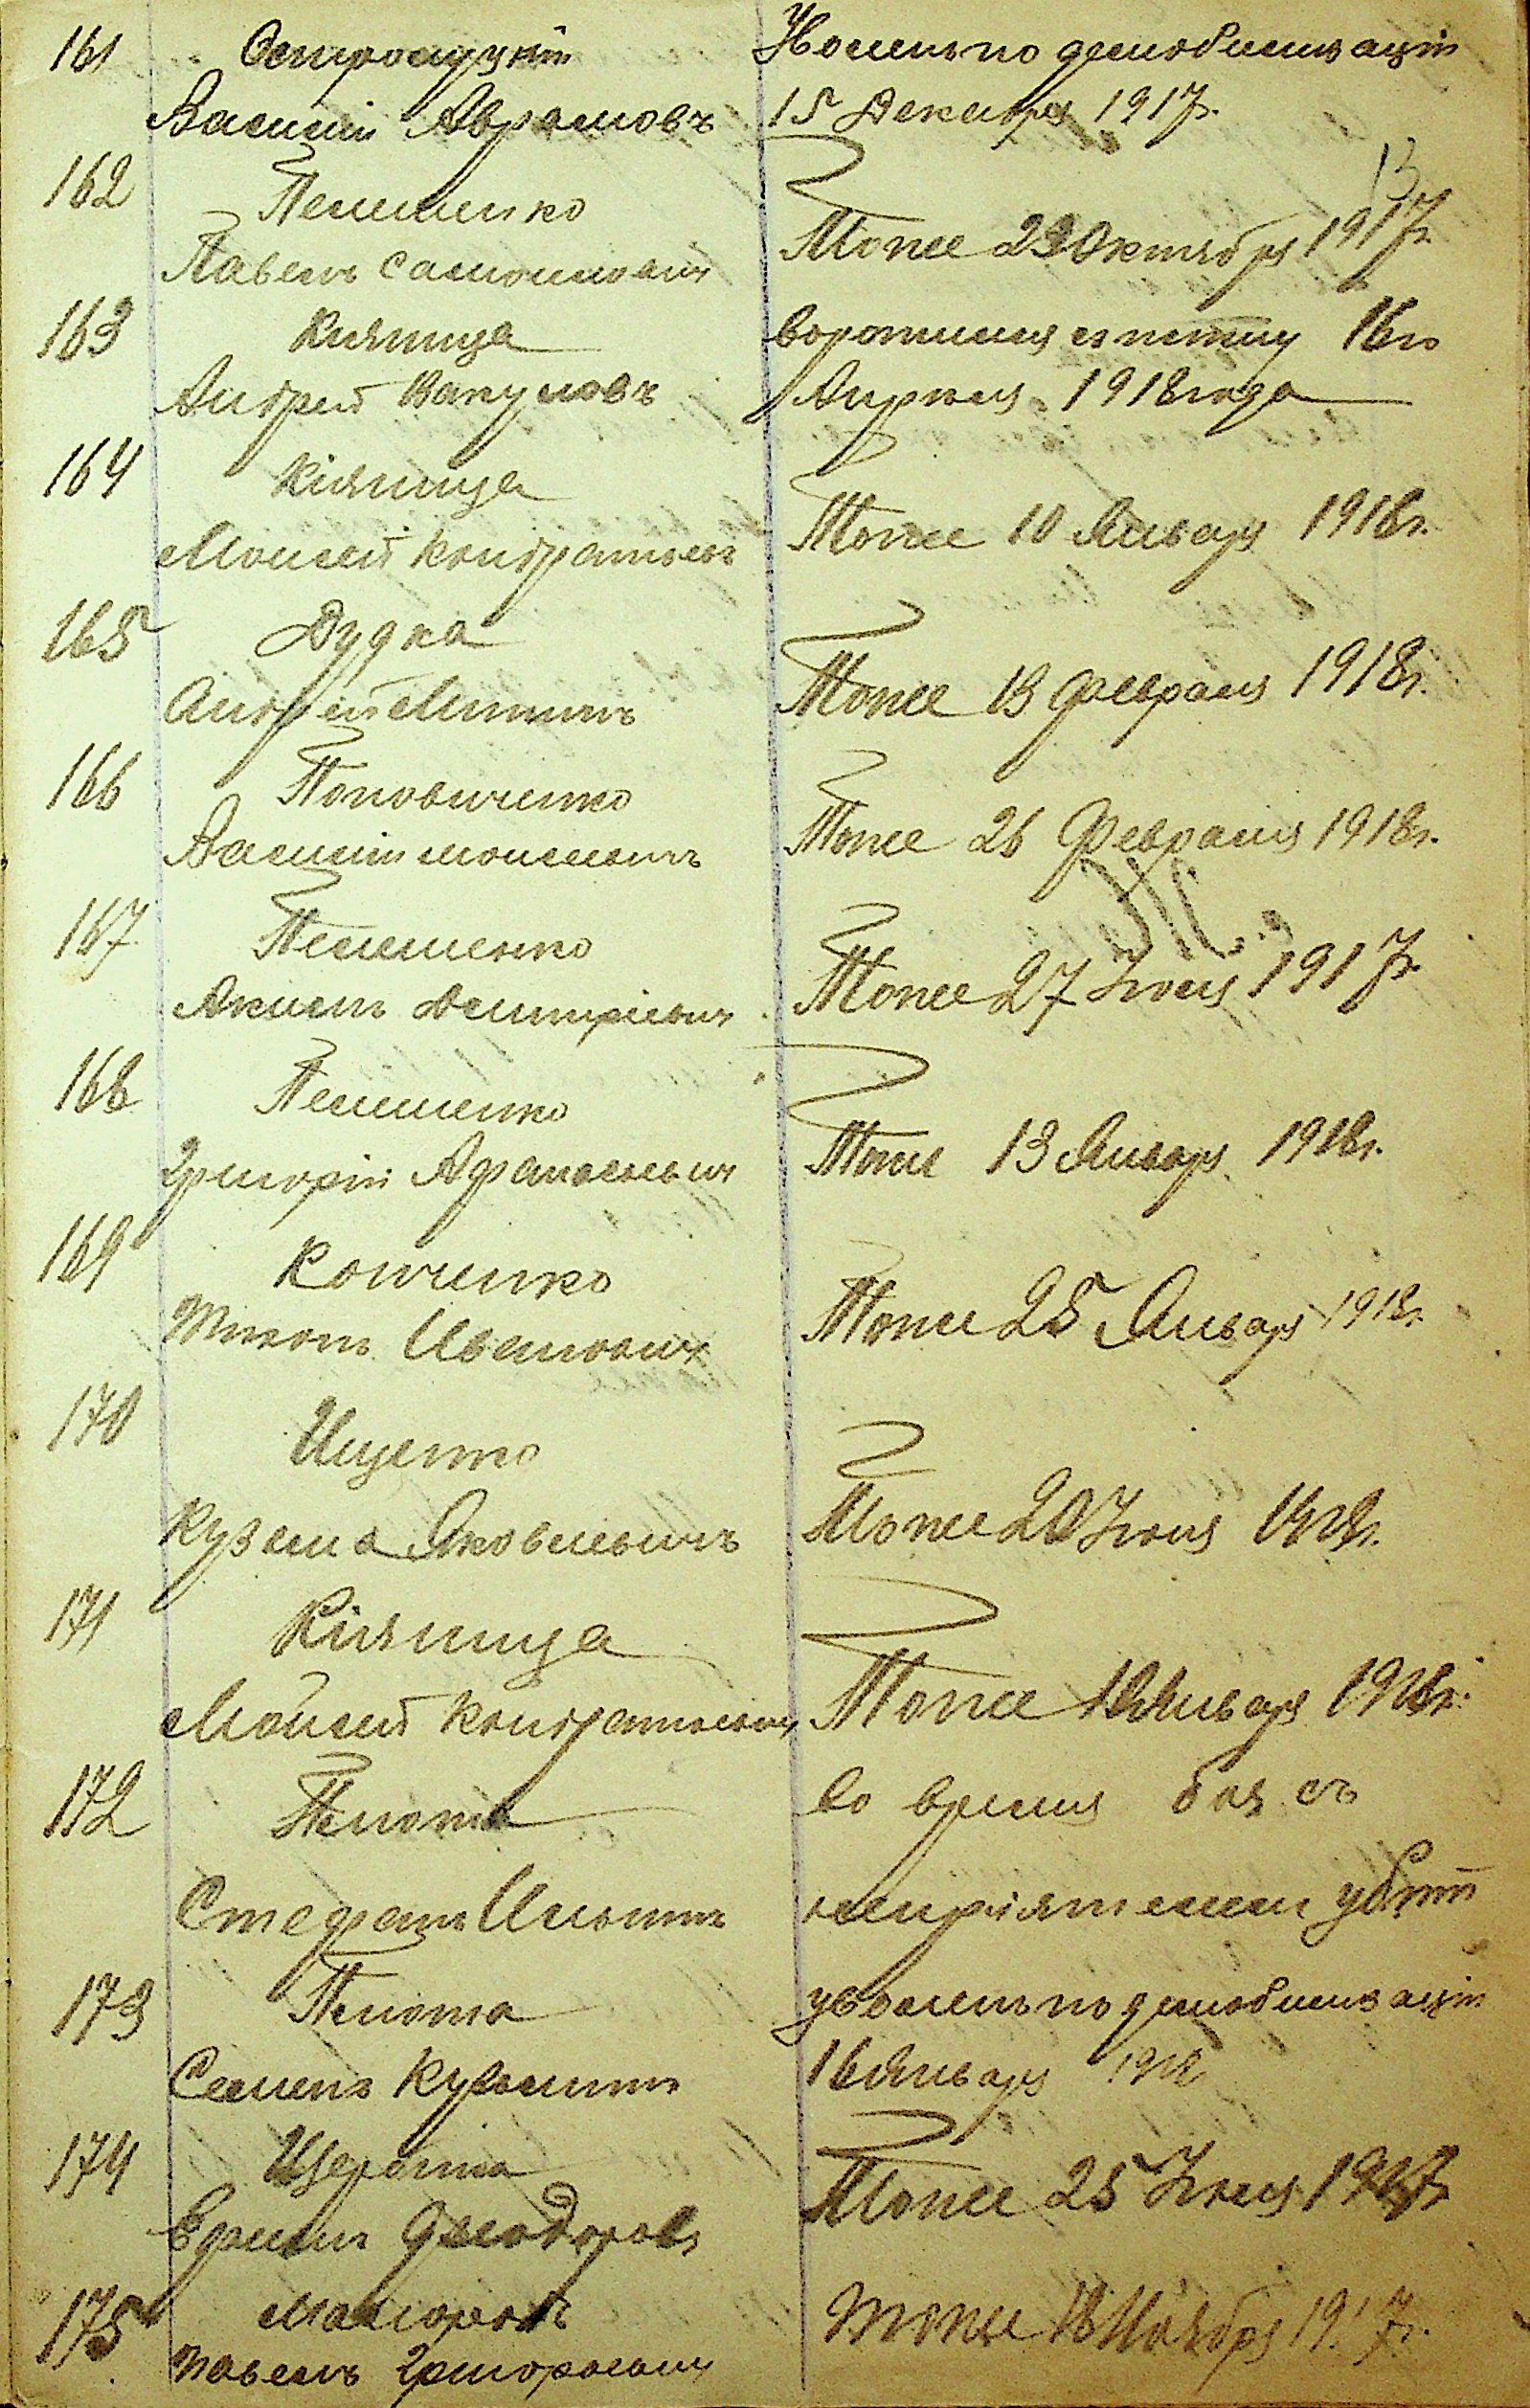 161 Остроцукій
Уволенъ по демобилизаціи
Василій Аврамовъ
15 Декабря 1917г.
13
162 Пелешенко
Павелъ Самоиловичъ
Тоже 29 Октября 1917г.
163 Кияшица
Андрей Вакуловъ
воротился изъ плену 16го
Апреля 1918 года
164 Кіяшица
Моисей Кондратьевъ
Тоже 10 Января 1918г.
165 Дудка
Андрей Митинъ
Тоже 13 Февраля 1918г.
166 Поповиченко
Василій Моисеевичъ
Тоже 26 Февраля 1918г.
167 Пелешенко
Акимъ Дмитріевичъ
Тоже 27 Іюля 1917г.
168 Пелешенко
Григорій Афанасьевич
Тоже 13 Января 1918г.
169 Копченко
Тихонъ Иванович
Тоже 25 Января 1918г.
170 Ищенко
Кузема Яковлевичъ
Тоже 20 Іюля
171 Кіяшица
Моисей Кондратьевич
Тоже 10 Января 1918г.
172 Пслюта
Стефанъ Ильинъ
во время боя съ
непріятелемъ убитъ
173
Семенъ Кузьминъ
уволенъ по демобилизаціи
16 Января 1918
174 Щербина
Ефимъ Феодоровъ
Тоже 25 Іюля 1917г.
175
Павелъ Григорьевич
Тоже 18 Ноября 1917г.